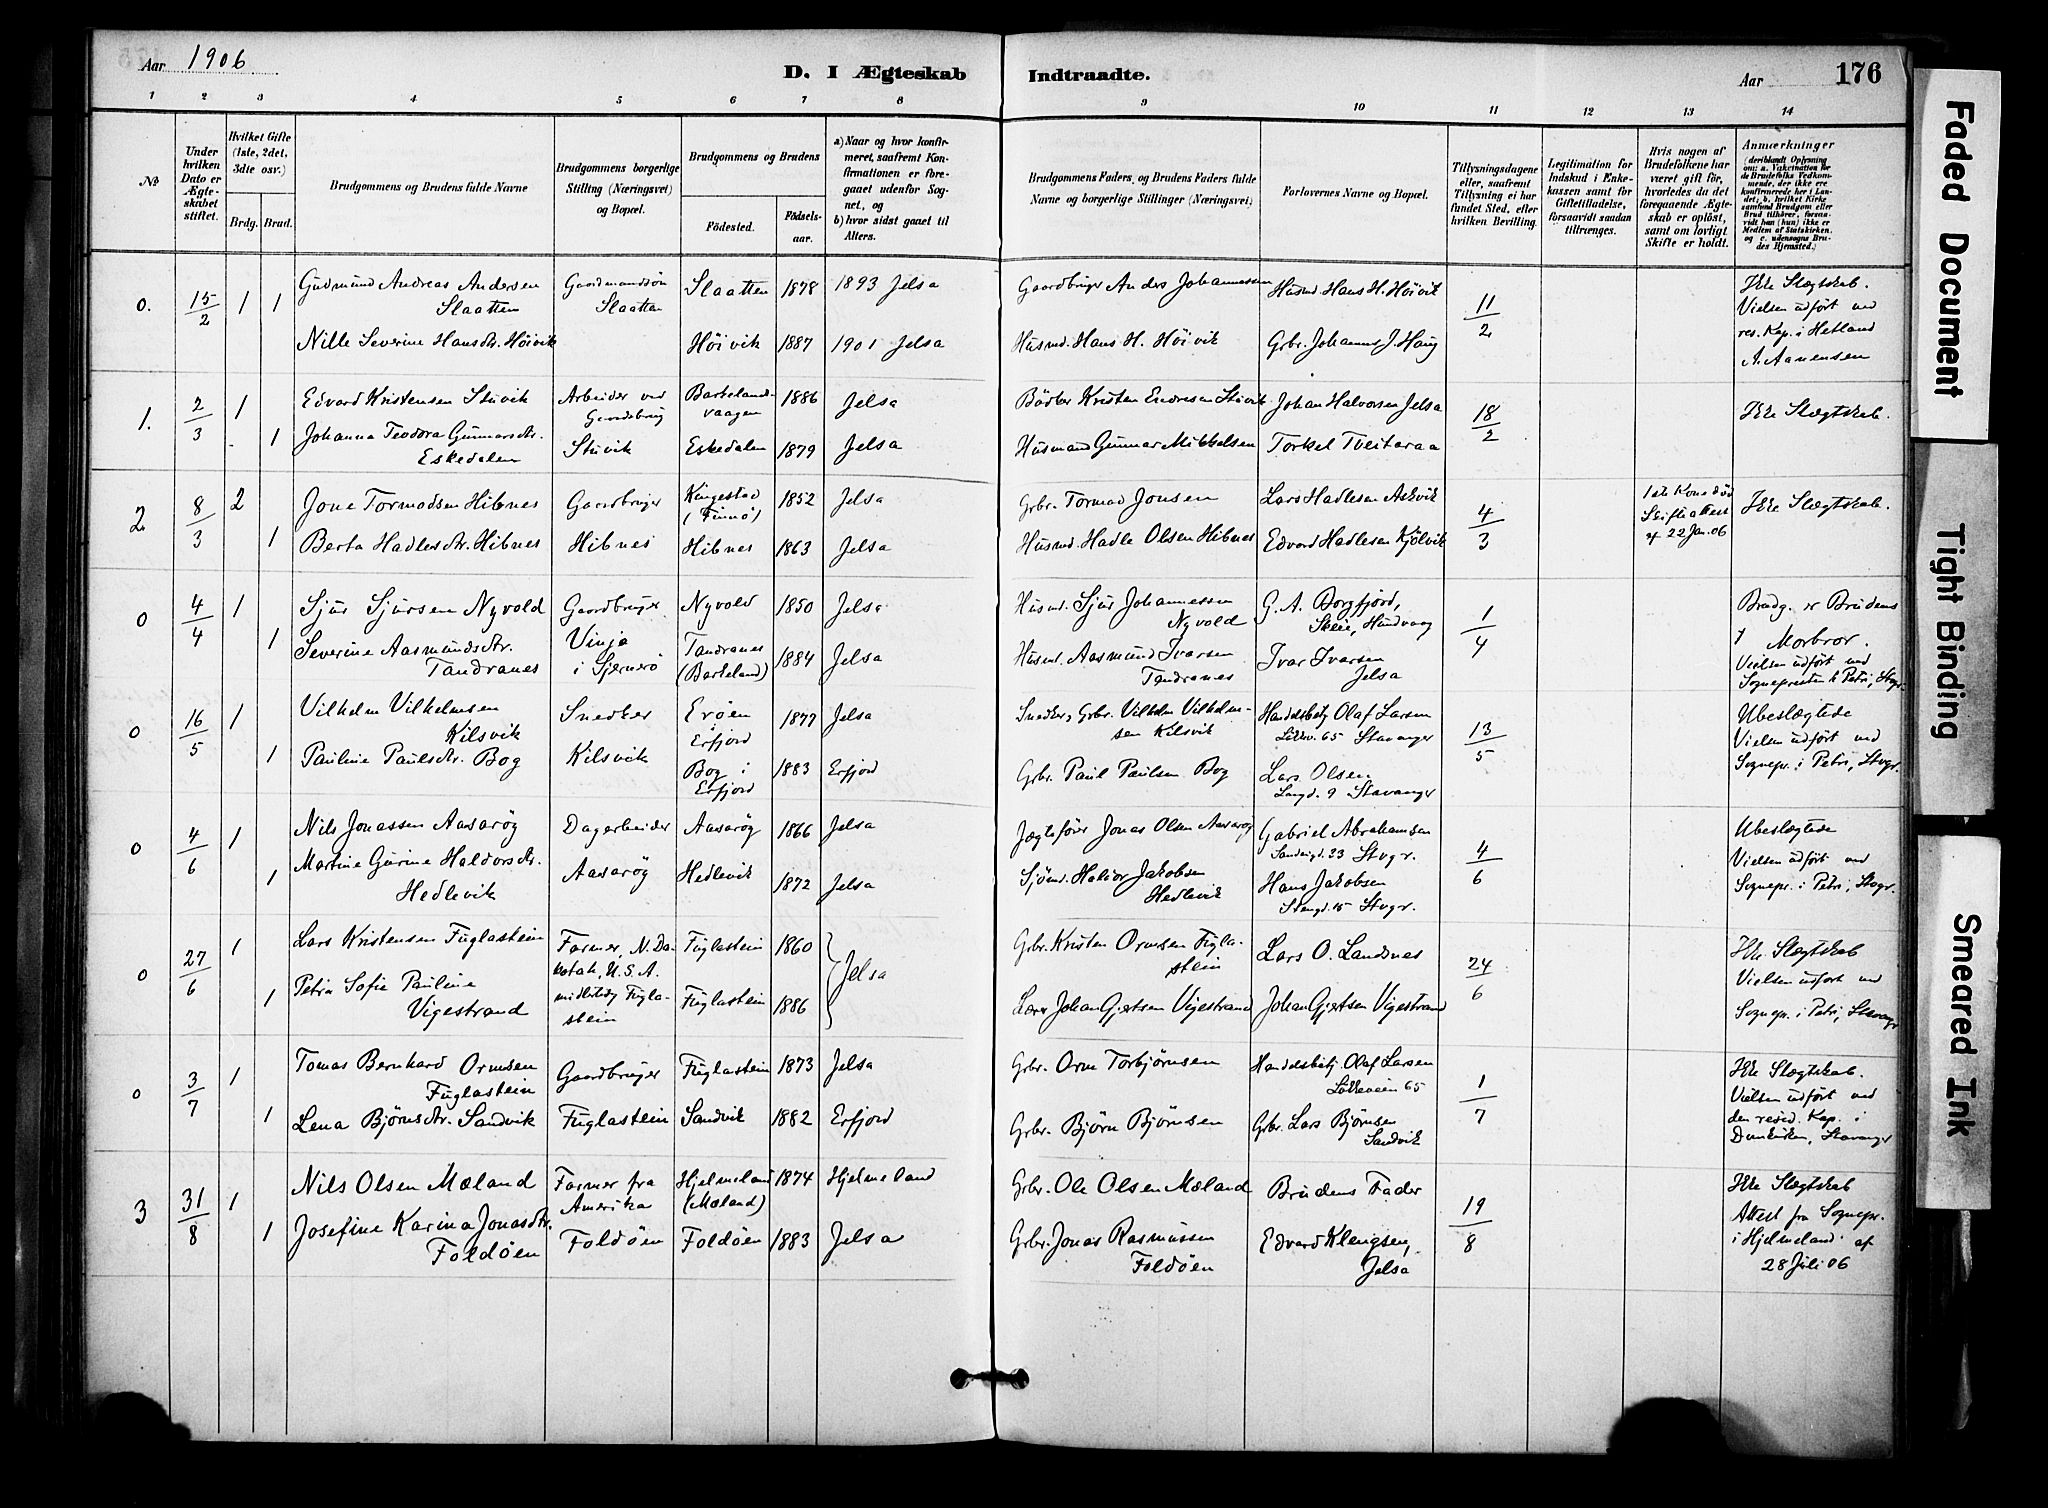 Aar 1906
D. I Ægteskab
Indtraadte.
Aar
176
1 2 3 4 5 6 7 8 9 10 11 12 13 14
№
Under hvilken Dato er Ægteskabet stiftet.
Hvilket Gifte (1ste, 2det, 3die osv.)
Brdg. Brud.
Brudgommens og Brudens fulde Navne
Brudgommens borgerlige Stilling (Næringsvei) og Bopæl.
Brudgommens og Brudens
Fødested.
Fødselsaar.
a) Naar og hvor konfirmeret, saafremt Konfirmationen er foregaaet udenfor Sognet, og
b) hvor sidst gaaet til Alters.
Brudgommens Faders, og Brudens Faders fulde Navne og borgerlige Stillinger (Næringsvei)
Forlovernes Navne og Bopæl.
Tillysningsdagene eller, saafremt Tillysning ei har fundet Sted, efter hvilken Bevilling.
Legitimation for Indskud i Enkekassen samt for Giftetilladelse, forsaavidt saadan tiltrænges.
Hvis nogen af Brudefolkene har været gift før, hvorledes da det foregaaende Ægteskab er opløst, samt om lovligt Skifte er holdt.
Anmærkninger
(deriblandt Oplysning om: a. Vakcination for de Brudefolks Vedkommende, der ikke ere konfirmerede her i Landet; b. hvilket Kirkesamfund Brudgom eller Brud tilhører, forsaavidt han (hun) ikke er Medlem af Statskirken. og c. udensogns Brudes Hjemsted.)
0. 15/2 1 1 Gudmund Andreas Andersen Slaatten
Gaardmandssøn Slaatten
Slaatten 1878 1893 Jelsa
Gaardbruger Anders Johannessen
Husmd. Hans H. Höivik
11/2
Ikke Slægtskab.
Vielsen udført ved
res. Kap. i Hetland
A. Aanensen
Nille Severine Hansdtr. Höivik
Höivik 1887 1901 Jelsa
Husmd. Hans H. Höivik
Grbr. Johannes J. Haug
1. 2/3 1 Edvard Kristensen Stuvik
Arbeider ved Gaardsbrug
Barkelandsvaagen 1886 Jelsa
Bødker Kristen Endresen Stuvik
Johan Halvorsen Jelsa
18/2
Ikke Slægtskab.
1 Johanna Teodora Gunnarsdtr. Eskedalen
Stuvik
Eskedalen 1879 Jelsa
Husmand Gunnar Mikkelsen
Torkel Tveitaraa
2 8/3 2 Jone Tormodsen Hibnes
Gaardbruger
Kingestad (Finnö) 1852 Jelsa
Grbr. Tormod Jonsen
Lars Hadlesen Askvik
4/3
1ste Kone død
Skifteattest
af 22 Jan. 06
Ikke Slægtskab.
1 Berta Hadlesdtr. Hibnes
Hibnes
Hibnes 1863 Jelsa
Husmd. Hadle Olsen Hibnes
Edvard Hadlesen Kjölvik
0 4/4 1 Sjur Sjursen Nyvold
Gaardbruger
Nyvold 1850 Jelsa
Husmd. Sjur Johannessen Nyvold
G. A. Borgfjord,
Skeie, Hundvaag
1/4
Brudg. er Brudens
Morbror.
Vielsen udført ved
Sognepresten t. Petri, Stvgr.
1 Severine Aasmundsdtr. Tandranes
Vinja
i Sjernerö
Tandranes (Barkeland) 1884 Jelsa
Husmd. Aasmund Ivarsen Tandranes
Ivar Ivarsen
Jelsa
0 16/5 1 Vilhelm Vilhelmsen Kilsvik
Snedker
Erøen Erfjord 1877 Jelsa
Snedker, Grbr. Vilhelm Vilhelmsen Kilsvik
Handelsbetj. Olaf Larsen
Løkkev. 65 Stavanger
13/5
Ubeslægtede
Vielsen udført ved
Sognepr. i Petri, Stvgr.
1 Pauline Paulsdtr. Bog
Kilsvik
Bog i Erfjord 1883 Erfjord
Grbr. Paul Paulsen Bog
Lars Olsen.
Langd. 9 Stavanger
0 4/6 1 Nils Jonassen Aasarøg
Dagarbeider
Aasarøg 1866 Jelsa
Jægtefører Jonas Olsen Aasarøg
Gabriel Abrahamsen
Sandvigd. 23 Stvgr.
4/6
Ubeslægtede
Vielsen udført ved
Sognepr. i Petri, Stvgr.
1 Martine Gurine Haldorsdtr. Hedlevik
Aasarøg
Hedlevik 1872 Jelsa
Sjömd. Haldor Jakobsen Hedlevik
Hans Jakobsen
Stengd. 15 Stvgr.
0 27/6 1 Lars Kristensen Fuglastein
Farmer, N. Dakotah, U.S.A.
midlertidig Fuglastein
Fuglastein 1860 Jelsa
Grbr. Kristen Ormsen Fuglastein
Lars O. Landsnes
24/6
Ikke Slægtskab
Vielsen udført ved
Sognepr. i Petri, Stavanger
1 Petra Sofie Pauline Vigestrand
Fuglastein 1886
Lærer Johan Gjertsen Vigestrand
Johan Gjertsen Vigestrand
0 3/7 1 Tomas Bernhard Ormsen Fuglastein
Gaardbruger
Fuglastein 1873 Jelsa
Grbr. Orm Torbjørnsen
Handelsbetj. Olaf Larsen
Løkkeveien 65
1/7
Ikke Slægtskab.
Vielsen udført ved
den resid. Kap. i
Domkirken, Stavanger
1 Lena Bjørnsdtr. Sandvik
Fuglastein
Sandvik 1882 Erfjord
Grbr. Bjørn Bjørnsen
Grbr. Lars Bjørnsen
Sandvik
3 31/8 1 Nils Olsen Mæland
Farmer fra Amerika
Hjelmeland (Mæland) 1874 Hjelmeland
Grbr. Ole Olsen Mæland
Brudens Fader
19/8
Ikke Slægtskab
Attest fra Sognepr.
i Hjelmeland af
28 Juli 06
1 Josefine Karina Jonasdtr. Foldøen
Foldøen
Foldøen 1883 Jelsa
Grbr. Jonas Rasmussen Foldøen
Edvard Klengsen,
Jelsa
Faded Document
Tight Binding
Smeared Ink